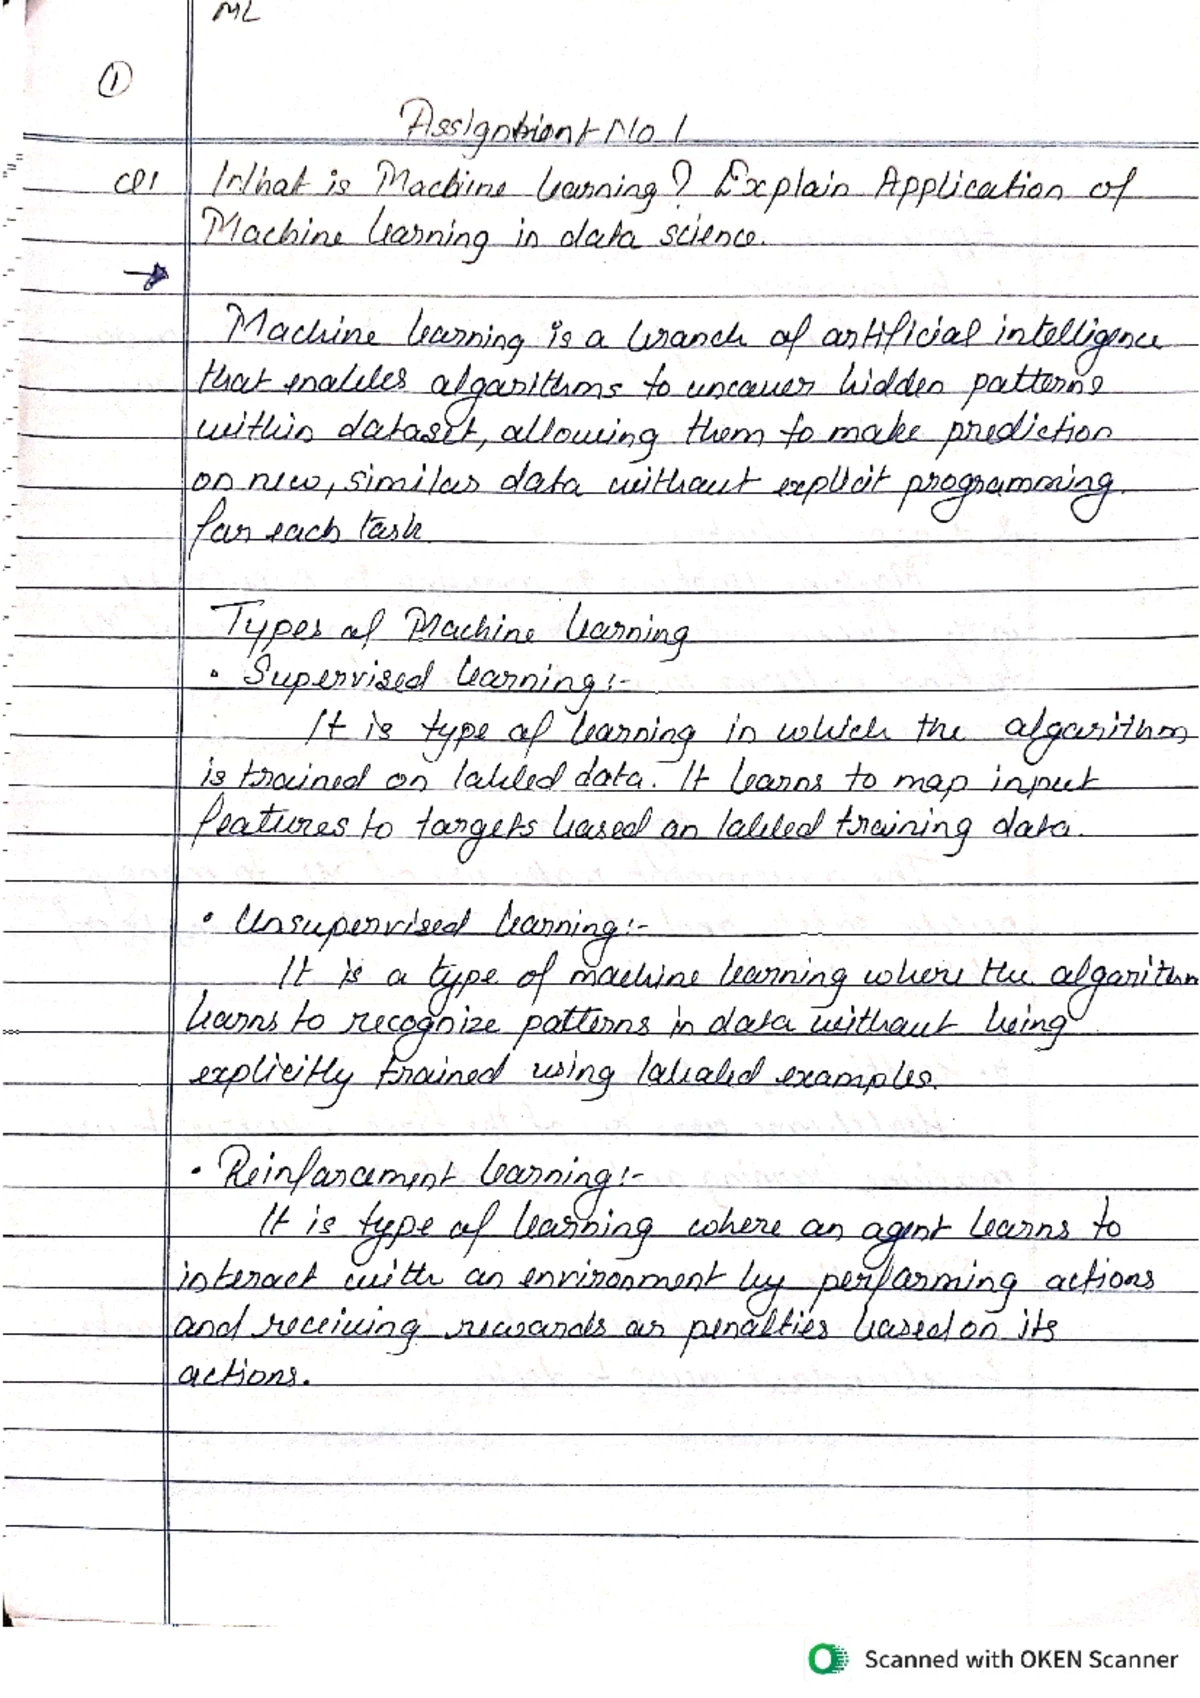 ML
1
Assignment No 1
Q1 What is Machine learning? Explain Application of
Machine learning in data science.
→
Machine learning is a branch of artificial intelligence
that enables algorithms to uncover hidden patterns
within dataset, allowing them to make prediction
on new, similar data without explicit programming
for each task
Types of Machine learning
• Supervised learning:-
It is type of learning in which the algorithm
is trained on labled data. It learns to map input
features to targets based on labled training data.
• Unsupervised learning:-
It is a type of machine learning where the algorithm
learns to recognize patterns in data without being
explicitly trained using labaled examples.
• Reinforcement learning:-
It is type of learning where an agent learns to
interact with an environment by performing actions
and receiving rewards or penalties based on its
actions.
Scanned with OKEN Scanner